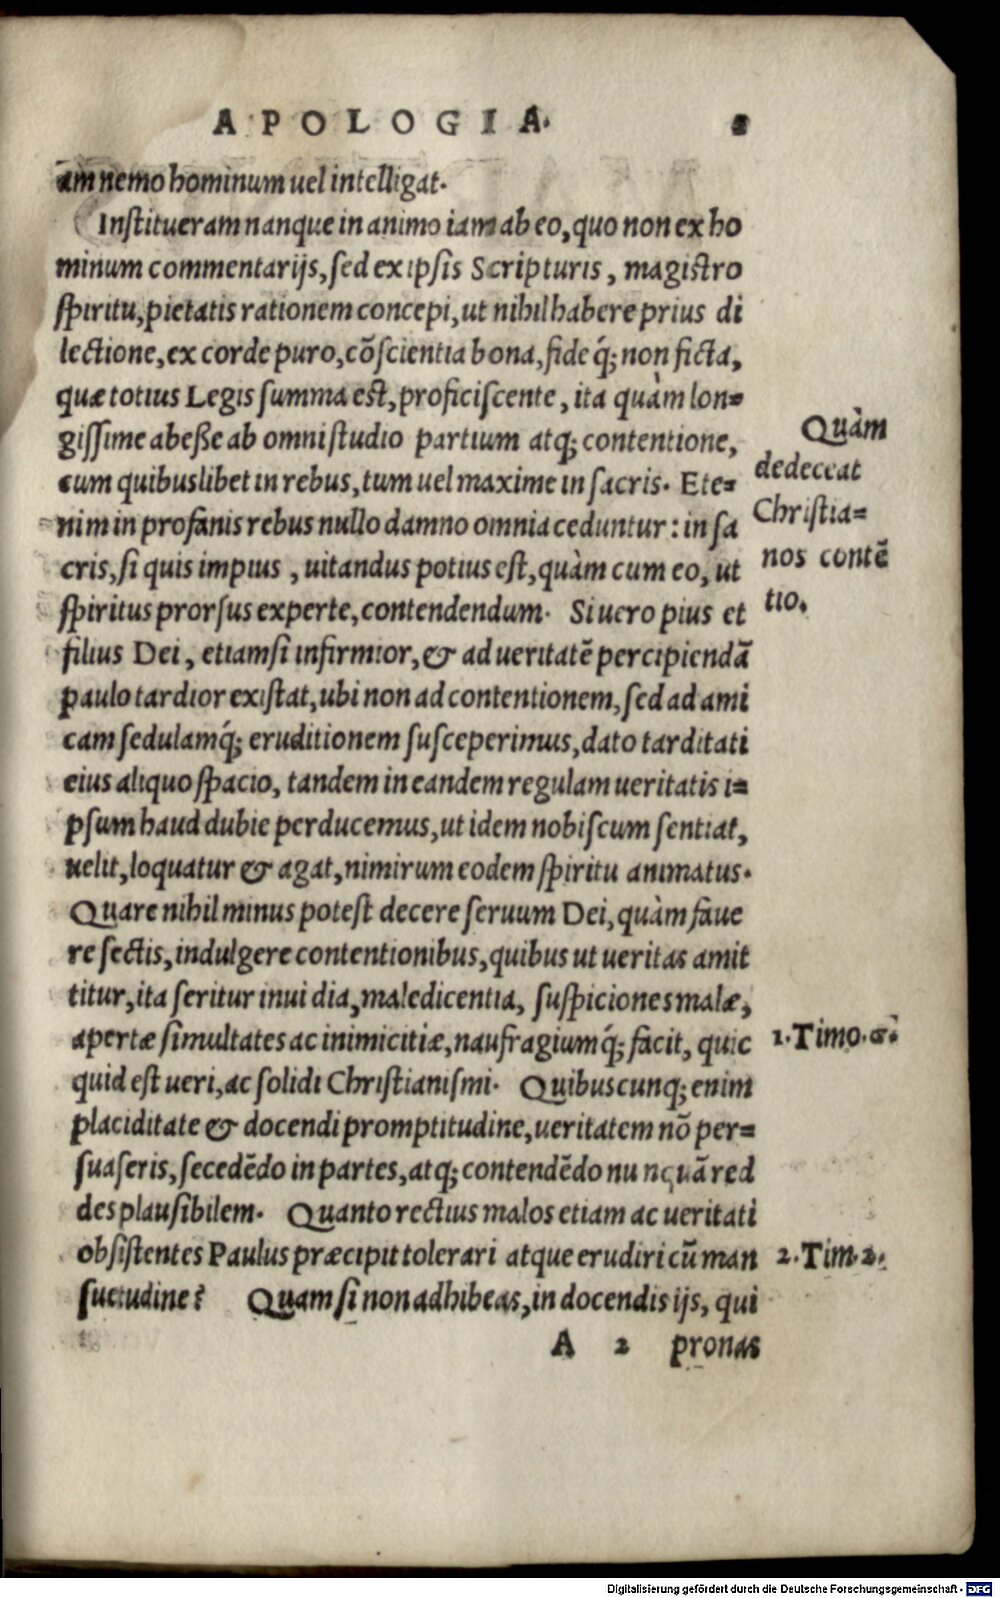 APOLOGIA. 2
am nemo hominum uel intelligat.
Institueram nanque in animo iam ab eo, quo non ex ho
minum commentarijs, sed ex ipsis Scripturis, magistro
spiritu, pietatis rationem concepi, ut nihil habere prius di
lectione, ex corde puro, cõscientia bona, fide q́; non ficta,
quæ totius Legis summa est, proficiscente, ita quàm lon=
gissime abesse ab omni studio partium atq; contentione,
cum quibuslibet in rebus, tum uel maxime in sacris. Ete=
nim in profanis rebus nullo damno omnia ceduntur: in sa
cris, si quis impius, uitandus potius est, quàm cum eo, ut
spiritus prorsus experte, contendendum. Si uero pius et
filius Dei, etiamsi infirmior, & ad ueritatẽ percipiendã
paulo tardior existat, ubi non ad contentionem, sed ad ami
cam sedulamq́; eruditionem susceperimus, dato tarditati
eius aliquo spacio, tandem in eandem regulam ueritatis i=
psum haud dubie perducemus, ut idem nobiscum sentiat,
uelit, loquatur & agat, nimirum eodem spiritu animatus.
Quare nihil minus potest decere seruum Dei, quàm faue
re sectis, indulgere contentionibus, quibus ut ueritas amit
titur, ita seritur inuidia, maledicentia, suspiciones malæ,
apertæ simultates ac inimicitiæ, naufragiumq́; facit, quic
quid est ueri, ac solidi Christianismi. Quibuscunq; enim
placiditate & docendi promptitudine, ueritatem nõ per=
suaseris, secedẽdo in partes, atq; contendẽdo nunquã red
des plausibilem. Quanto rectius malos etiam ac ueritati
obsistentes Paulus præcipit tolerari atque erudiri cũ man
suetudine? Quam si non adhibeas, in docendis ijs, qui
A 2 pronas
Quàm
dedeceat
Christia=
nos contẽ
tio.
1. Timo. 6.
2. Tim. 2.
Digitalisierung gefördert durch die Deutsche Forschungsgemeinschaft - DFG